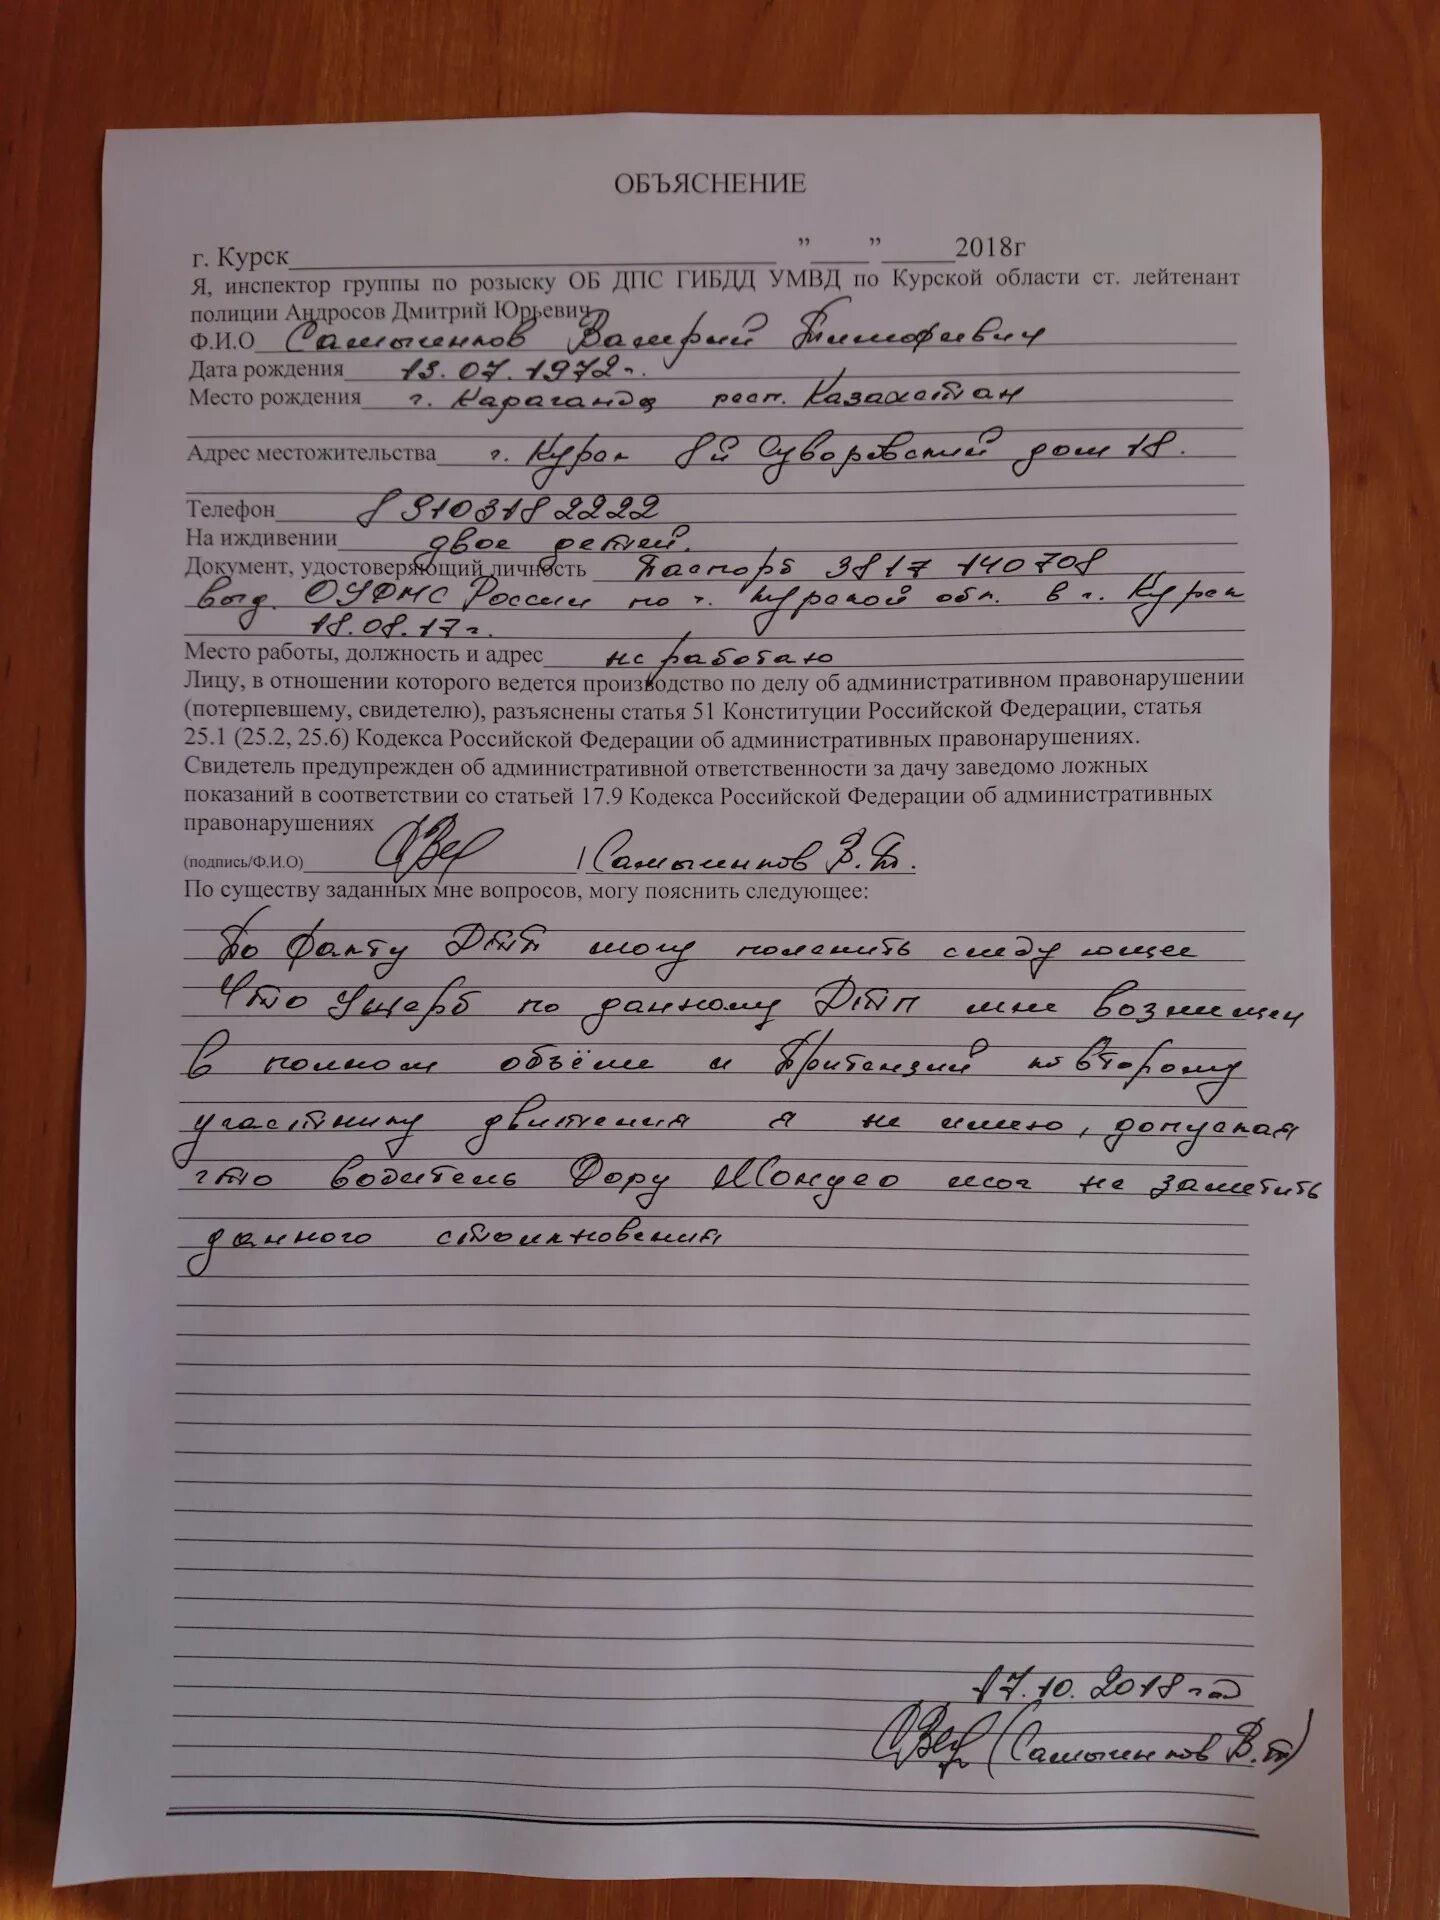 ОБЪЯСНЕНИЕ
г. Курск ” ” 2018г
Я, инспектор группы по розыску ОБ ДПС ГИБДД УМВД по Курской области ст. лейтенант
полиции Андросов Дмитрий Юрьевич
Ф.И.О Валерий Тимофеевич
Дата рождения 13.07.1972г.
Место рождения г. Караганда респ. Казахстан
Адрес местожительства г. Курск 8й Суворовский дом 18.
Телефон 89103182222
На иждивении двое детей.
Документ, удостоверяющий личность Паспорт 3817 140708
выд. ОУФМС России по г. Курской обл. в г. Курск
18.08.17г.
Место работы, должность и адрес не работаю
Лицу, в отношении которого ведется производство по делу об административном правонарушении
(потерпевшему, свидетелю), разъяснены статья 51 Конституции Российской Федерации, статья
25.1 (25.2, 25.6) Кодекса Российской Федерации об административных правонарушениях.
Свидетель предупрежден об административной ответственности за дачу заведомо ложных
показаний в соответствии со статьей 17.9 Кодекса Российской Федерации об административных
правонарушениях
(подпись/Ф.И.О) / В.Т.
По существу заданных мне вопросов, могу пояснить следующее:
По факту ДТП могу пояснить следующее
Что Ущерб по данному ДТП мне возмещен
в полном объёме и Притензий по второму
участнику движения я не имею, допускаю
что водитель Форд Мондео мог не заметить
данного столкновения
17.10.2018 год
( В.Т)